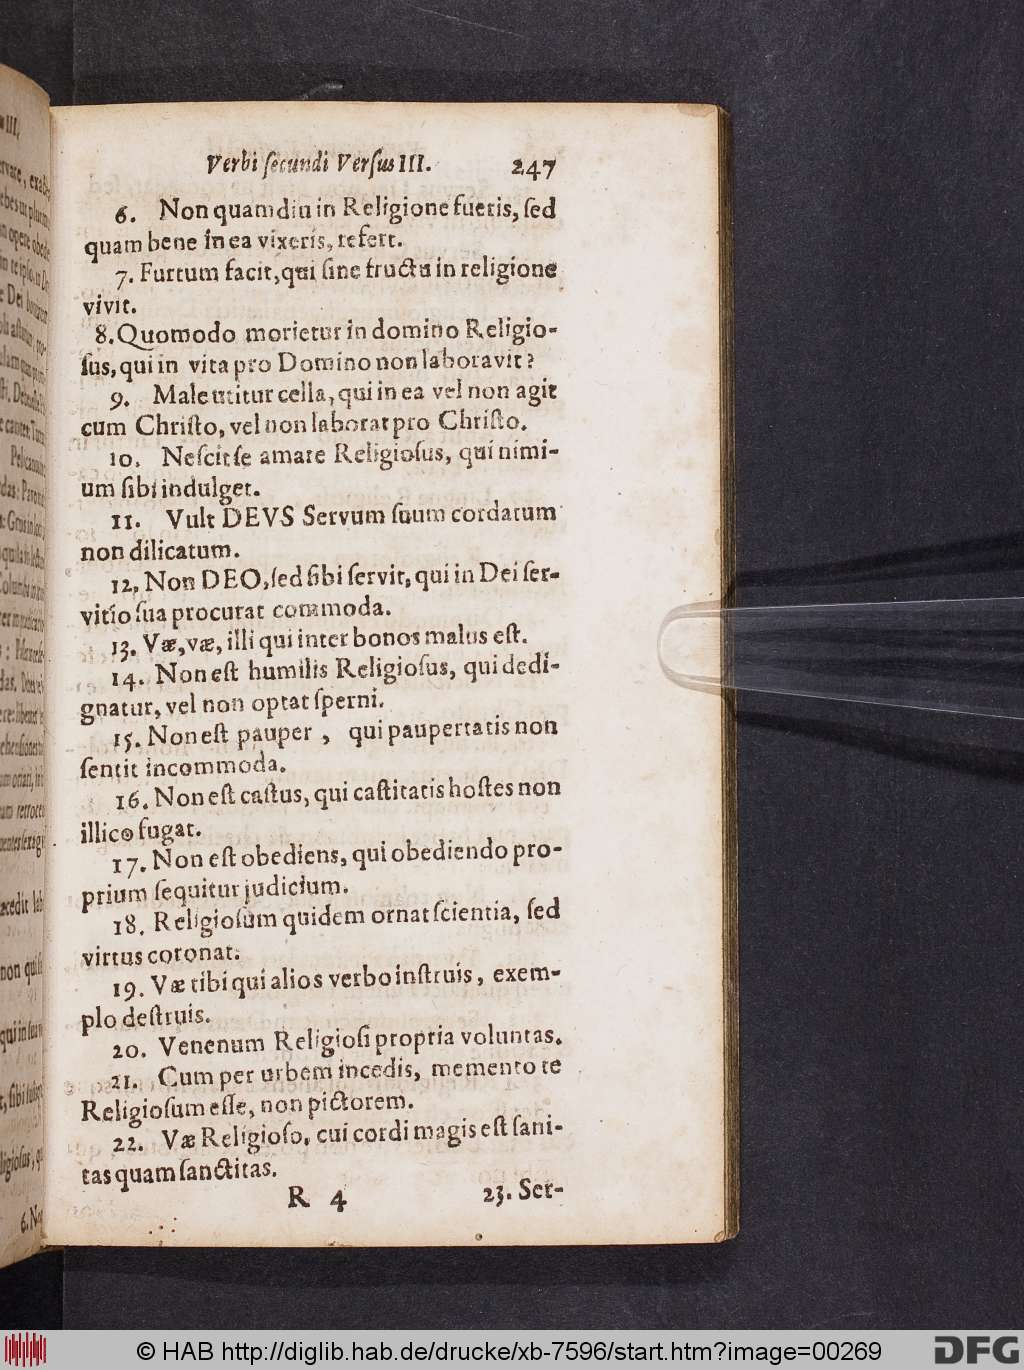 Verbi ſecundi Verſus III. 247
6. Non quamdiu in Religione fueris, ſed
quam bene in ea vixeris, refert.
7. Furtum facit, qui ſine fructu in religione
vivit.
8. Quomodo morietur in domino Religio-
ſus, qui in vita pro Domino non laboravit?
9. Male utitur cella, qui in ea vel non agit
cum Chriſto, vel non laborat pro Chriſto.
10. Neſcit ſe amare Religioſus, qui nimi-
um ſibi indulget.
11. Vult DEVS Servum ſuum cordatum
non dilicatum.
12. Non DEO, ſed ſibi ſervit, qui in Dei ſer-
vitio ſua procurat commoda.
13. Væ, væ, illi qui inter bonos malus eſt.
14. Non eſt humilis Religioſus, qui dedi-
gnatur, vel non optat ſperni.
15. Non eſt pauper, qui paupertatis non
ſentit incommoda.
16. Non eſt caſtus, qui caſtitatis hoſtes non
illico fugat.
17. Non eſt obediens, qui obediendo pro-
prium ſequitur judicium.
18. Religioſum quidem ornat ſcientia, ſed
virtus coronat.
19. Væ tibi qui alios verbo inſtruis, exem-
plo deſtruis.
20. Venenum Religioſi propria voluntas.
21. Cum per urbem incedis, memento te
Religioſum eſſe, non pictorem.
22. Væ Religioſo, cui cordi magis eſt ſani-
tas quam ſanctitas.
R 4 23. Ser-
© HAB http://diglib.hab.de/drucke/xb-7596/start.htm?image=00269
DFG